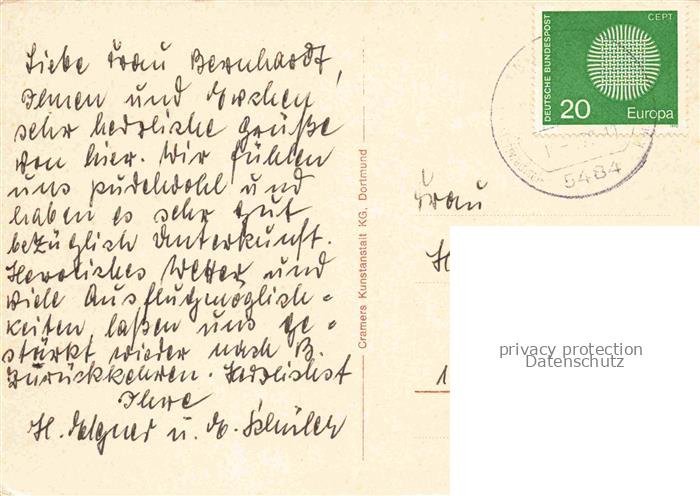 Liebe Frau Bernhardt,
Ihnen und
sehr herzliche Grüße
von hier. Wir fühlen
uns pudelwohl und
haben es sehr gut
bezüglich Unterkunft.
Herrliches Wetter und
viele Ausflugmöglich-
keiten laßen uns ge-
stärkt wieder nach B.
zurückkehren. Herzlichst
Ihre
H. u.
Cramers Kunstanstalt KG, Dortmund
DEUTSCHE BUNDESPOST
CEPT
20
Europa
5484
Frau
H
1
privacy protection
Datenschutz